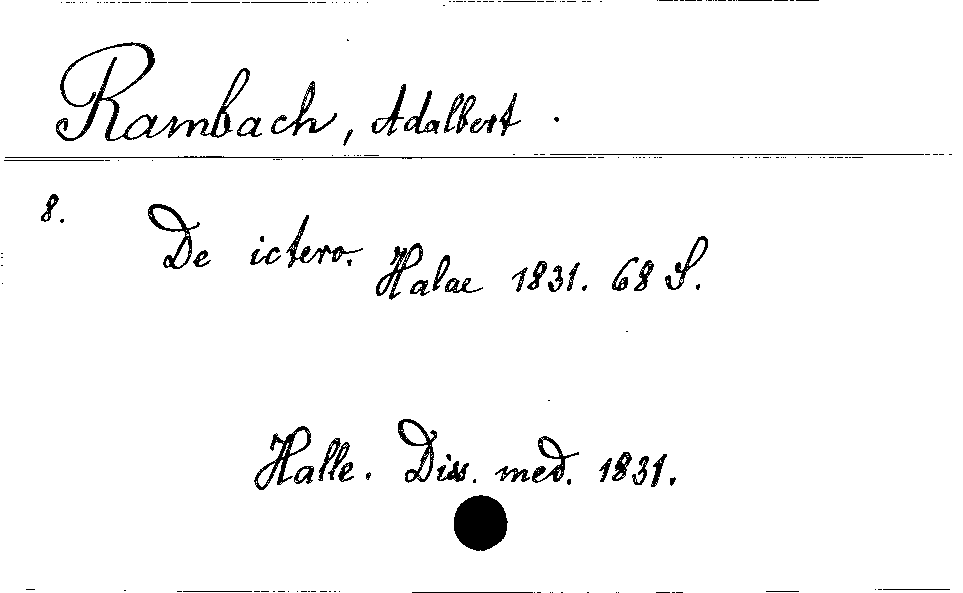 Rambach, Adalbert.
8. De ictero. Halae 1831. 68 S.
Halle. Diss. med. 1831.